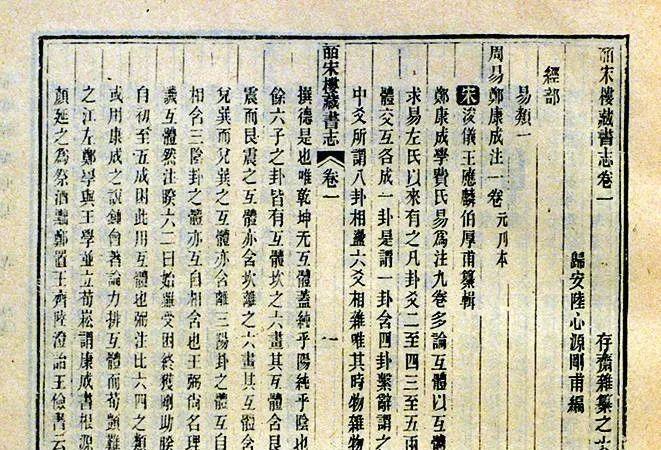 皕宋樓藏書志卷一　存齋雜纂之
歸安陸心源剛甫編
經部
易類一
周易鄭康成注一卷 元刊本
宋浚儀王應麟伯厚甫纂輯
鄭康成學費氏易爲注九卷多論互體以互體
求易左氏以來有之凡卦爻二至四三至五兩
體交互各成一卦是謂一卦含四卦繫辭謂之
中爻所謂八卦相盪六爻相雜唯其時物雜物
皕宋樓藏書志 卷一 一
撰德是也唯乾坤无互體蓋純乎陽純乎陰也
餘六子之卦皆有互體坎之六畫其互體含艮
震而艮震之互體亦含坎離之六畫其互體含
兌巽而兌巽之互體亦含離三陽卦之體互自
相含三陰卦之體亦互自相含也王弼尚名理
譏互體然注睽六二曰始雖受困終獲剛助睽
自初至五成困此用互體也弼注比六四之類
或用康成之說鍾會著論力排互體而荀顗難
之江左鄭學與王學並立荀崧謂康成書根源
顏延之爲祭酒黜鄭置王齊陸澄詒王儉書云